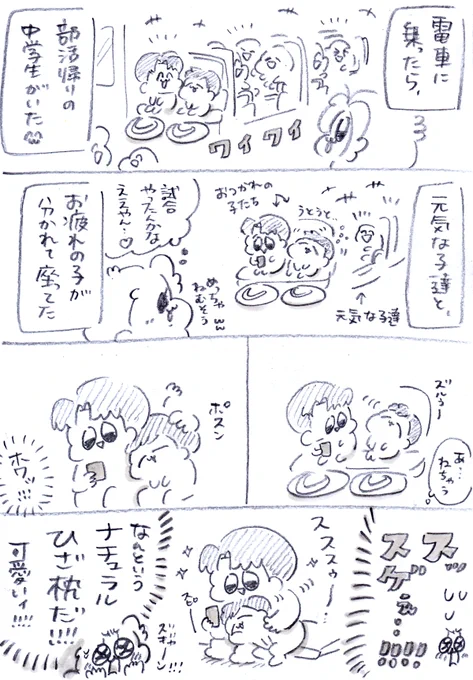 電車に
乗ったら、
ワイワイ
部活帰りの
中学生がいた
元気な子達と、
おつかれの
子たち
うとうと…
元気な子達
試合
やったんかな
ええやん…♡
めっちゃ
ねむそうww
お疲れの子が
分かれて座ってた
ズルぅー
あ…
ねちゃう
ポスン
ホワッ!!!
スッ
スゲぇ…!!!!
スススゥー…
スピ
なんという
ナチュラル
ひざ枕だ!!!!
可愛いィ!!!!
ズギャーン!!!